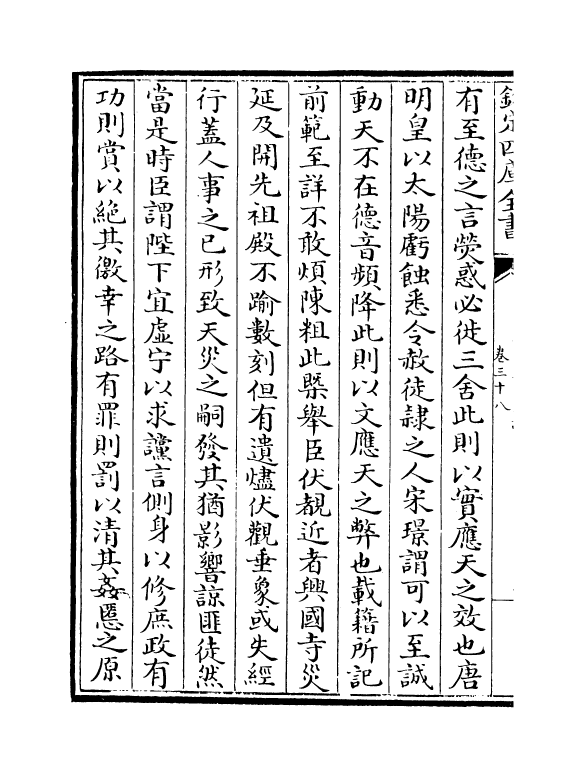 欽定四庫全書
卷三十八
有至德之言熒惑必徙三舍此則以實應天之效也唐
明皇以太陽虧蝕悉令赦徒隷之人宋璟謂可以至誠
動天不在德音頻降此則以文應天之弊也載籍所記
前範至詳不敢煩陳粗此槩舉臣伏覩近者興國寺災
延及開先祖殿不踰數刻但有遺燼伏觀垂象或失經
行蓋人事之已形致天災之嗣發其猶影響諒匪徒然
當是時臣謂陛下宜虛宁以求讜言側身以修庶政有
功則賞以絶其徼幸之路有罪則罰以清其姦慝之原